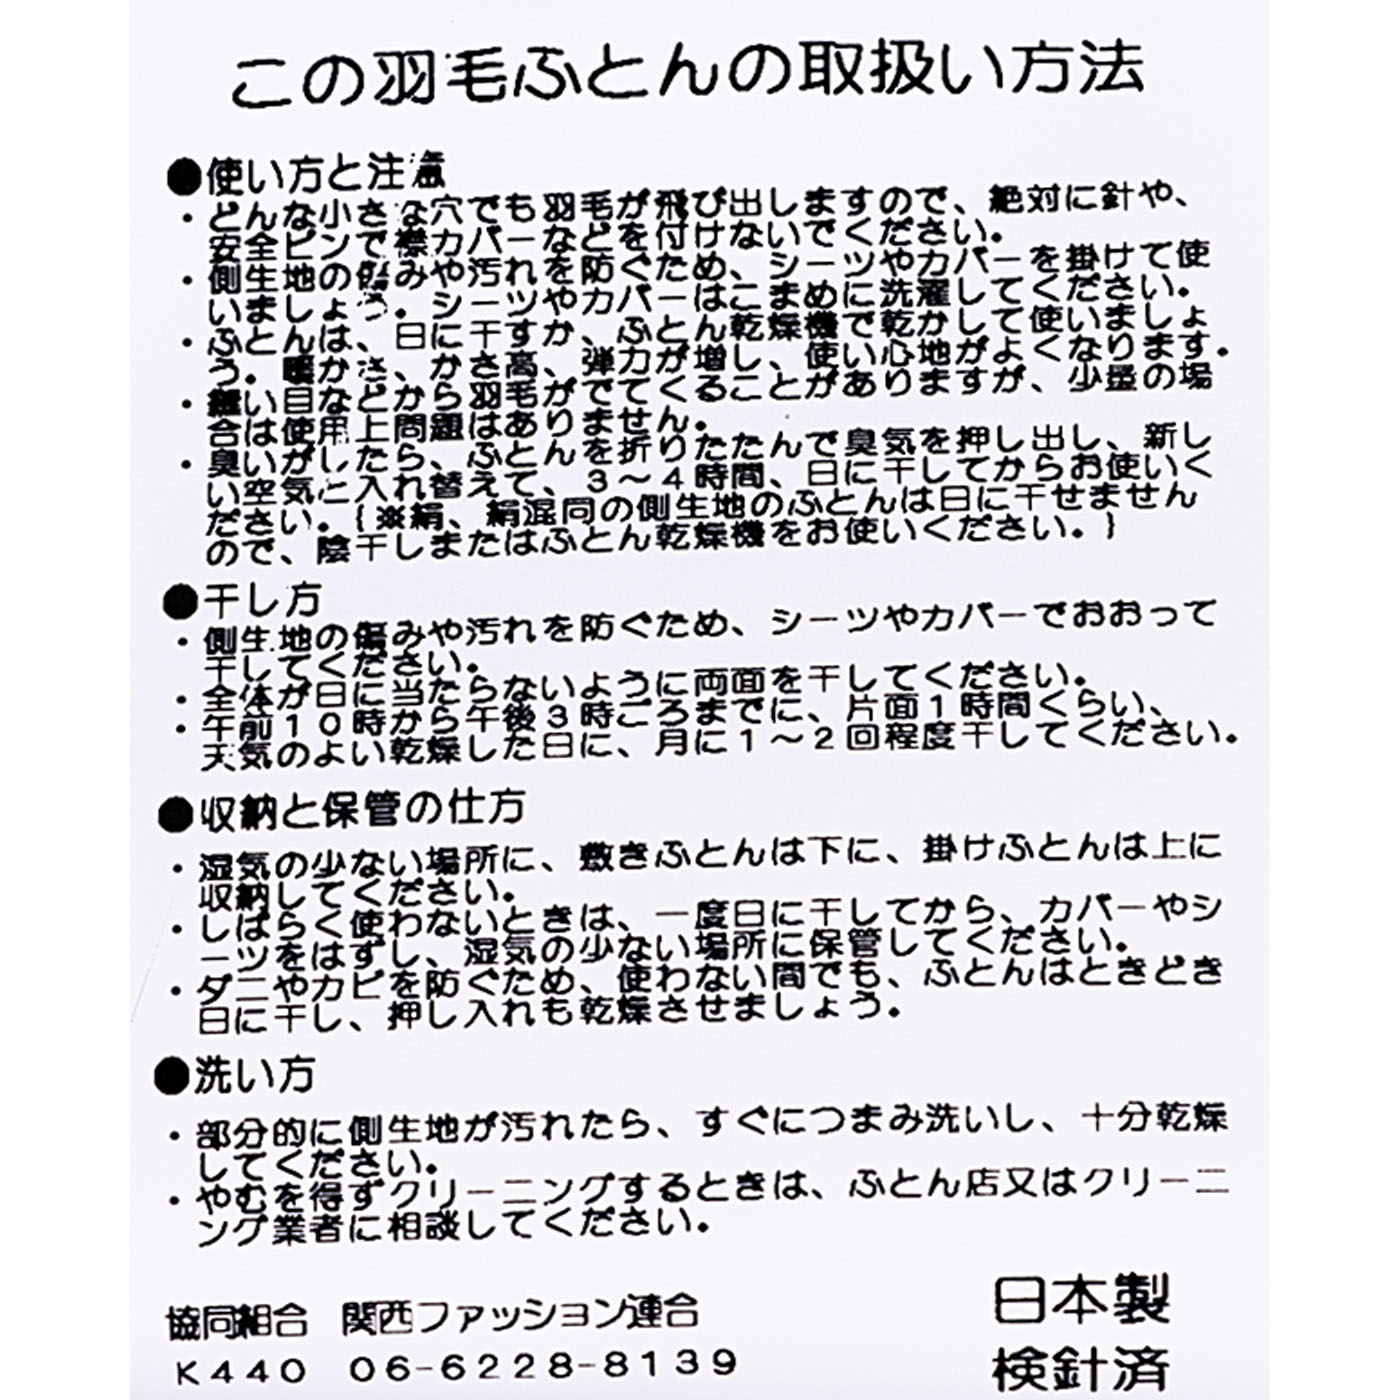 この羽毛ふとんの取扱い方法
●使い方と注意
・どんな小さな穴でも羽毛が飛び出しますので、絶対に針や、
安全ピンで襟カバーなどを付けないでください。
・側生地の傷みや汚れを防ぐため、シーツやカバーを掛けて使
いましょう。シーツやカバーはこまめに洗濯してください。
・ふとんは、日に干すか、ふとん乾燥機で乾かして使いましょ
う。暖かさ、かさ高、弾力が増し、使い心地がよくなります。
・縫い目などから羽毛がでてくることがありますが、少量の場
合は使用上問題はありません。
・臭いがしたら、ふとんを折りたたんで臭気を押し出し、新し
い空気と入れ替えて、3～4時間、日に干してからお使いく
ださい。{※絹、絹混同の側生地のふとんは日に干せません
ので、陰干しまたはふとん乾燥機をお使いください。}
●干し方
・側生地の傷みや汚れを防ぐため、シーツやカバーでおおって
干してください。
・全体が日に当たらないように両面を干してください。
・午前10時から午後3時ごろまでに、片面1時間くらい、
天気のよい乾燥した日に、月に1～2回程度干してください。
●収納と保管の仕方
・湿気の少ない場所に、敷きふとんは下に、掛けふとんは上に
収納してください。
・しばらく使わないときは、一度日に干してから、カバーやシ
ーツをはずし、湿気の少ない場所に保管してください。
・ダニやカビを防ぐため、使わない間でも、ふとんはときどき
日に干し、押し入れも乾燥させましょう。
●洗い方
・部分的に側生地が汚れたら、すぐにつまみ洗いし、十分乾燥
してください。
・やむを得ずクリーニングするときは、ふとん店又はクリーニ
ング業者に相談してください。
協同組合 関西ファッション連合
K440 06-6228-8139
日本製
検針済